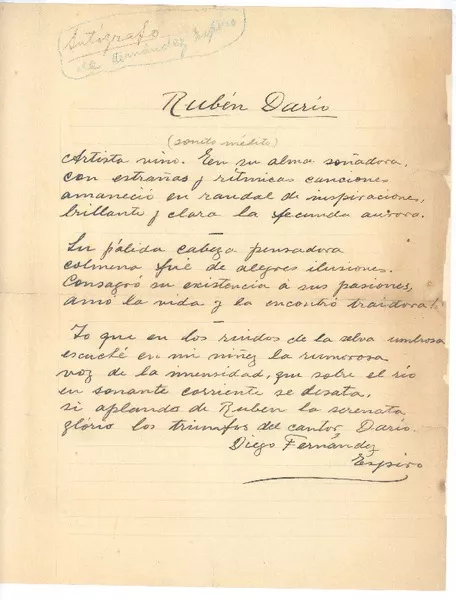 Autógrafo
de Hernández Espiro
Rubén Darío
(soneto inédito)
Artista vino. En su alma soñadora,
con estrañas y rítmicas canciones
amaneció en raudal de inspiraciones,
brillante y clara la fecunda aurora.
Su pálida cabeza pensadora
colmena fué de alegres ilusiones.
Consagró su existencia á sus pasiones,
amó la vida y la encontró traidora!
Yo que en los ruidos de la selva umbrosa
escuché en mi niñez la rumorosa
voz de la inmensidad, que sobre el río
en sonante corriente se desata,
si aplaudo de Ruben la serenata
glório los triunfos del cantor Darío.
Diego Fernández
Espiro